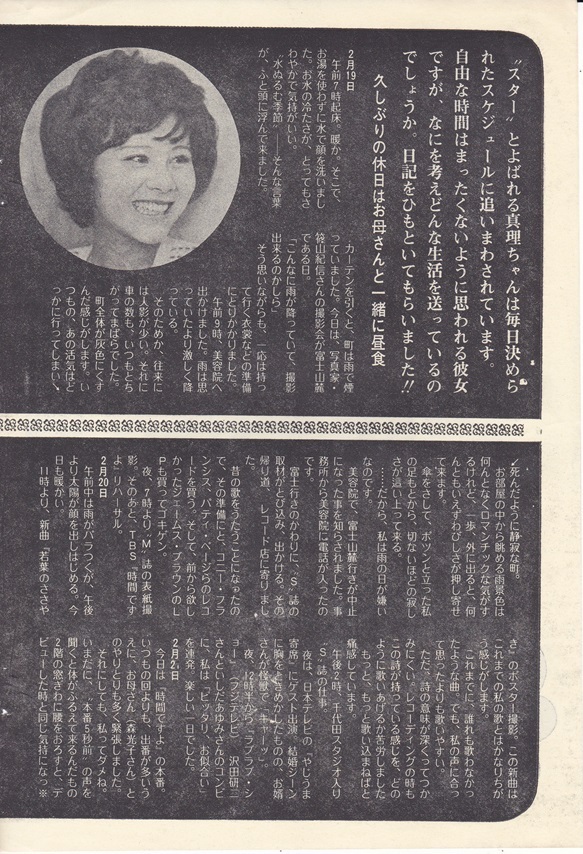 “スター”とよばれる真理ちゃんは毎日決めら
れたスケジュールに追いまわされています。
自由な時間はまったくないように思われる彼女
ですが、なにを考えどんな生活を送っているの
でしょうか。日記をひもといてもらいました!!
久しぶりの休日はお母さんと一緒に昼食
2月19日
午前7時起床。暖か。そこで、
お湯を使わずに水で顔を洗いまし
た。お水の冷たさが、とってもさ
わやかで気持がいい。
“水ぬるむ季節”――そんな言葉
が、ふと頭に浮んで来ました。
カーテンを引くと、町は雨で煙
っていました。今日は、写真家・
篠山紀信さんの撮影会が富士山麓
である日。
「こんなに雨が降っていて、撮影
出来るのかしら」
そう思いながらも、一応は持っ
て行く衣裳などの準備
にとりかかりました。
午前9時、美容院へ
出かけました。雨は思
っていたより激しく降
っている。
そのためか、往来に
は人影が少い。それに
車の数も、いつもとち
がってまばらでした。
町全体が灰色にくす
んだ感じがします。い
つもの、あの活気はど
っかに行ってしまい、
死んだように静寂な町。
お部屋の中から眺める雨景色は
何んとなくロマンチックな気がす
るけれど、一歩、外に出ると、何
んともいえずわびしさが押し寄せ
て来ます。
傘をさして、ポツンと立った私
の足もとから、切ないほどの寂し
さが這い上って来る。
……だから、私は雨の日が嫌い
なのです。
美容院で、富士山麓行きが中止
になった事を知らされました。事
務所から美容院に電話が入ったの
です。
富士行きのかわりに、“S”誌の
取材がとび込み、出かける。その
帰り道、レコード店に寄りまし
た。
昔の歌をうたうことになったの
で、その準備にと、コニー・フラ
ンシス、パティ・ページらのレコ
ードを買う。そして、前から欲し
かったジェームス・ブラウンのL
Pも買ってゴキゲン。
夜、7時より“M”誌の表紙撮
影。そのあと、TBS『時間です
よ』リハーサル。
2月20日
午前中は雨がパラつくが、午後
より太陽が顔を出しはじめる。今
日も暖かい。
11時より、新曲、“若葉のささや
き”のポスター撮影。この新曲は
これまでの私の歌とはかなりちが
う感じがします。
これまでに、誰れも歌わなかっ
たような曲。でも、私の声に合っ
て思ったよりも歌いやすい。
ただ、詩の意味が深くってつか
みにくい。レコーディングの時も
この詩が持っている感じを、どの
ように歌いあげるか苦労しました。
もっと、もっと歌い込まねばと
痛感しています。
午後2時、千代田スタジオ入り
“S”誌の仕事
夜は、日本テレビの『やじうま
寄席』にゲスト出演。結婚シーン
に胸をときめかしたものの、お婿
さんが怪獣で“キャーッ”
夜、12時半から『ラブラブ・シ
ョー』（フジテレビ）。沢田研二
さんといしだあゆみさんのコンビ
に、私は「ピッタリ、お似合い」
を連発。楽しい一日でした。
2月21日
今日は『時間ですよ』の本番。
いつもの回よりも、出番が多いう
えに、お母さん（森光子さん）と
のやりとりも多く緊張しました。
それにしても、私ってダメね。
いまだに、〝本番5秒前〟の声を
聞くと体がふるえて来るんだもの
2階の窓きわに腰をおろすと、デ
ビューした時と同じ気持になっ※